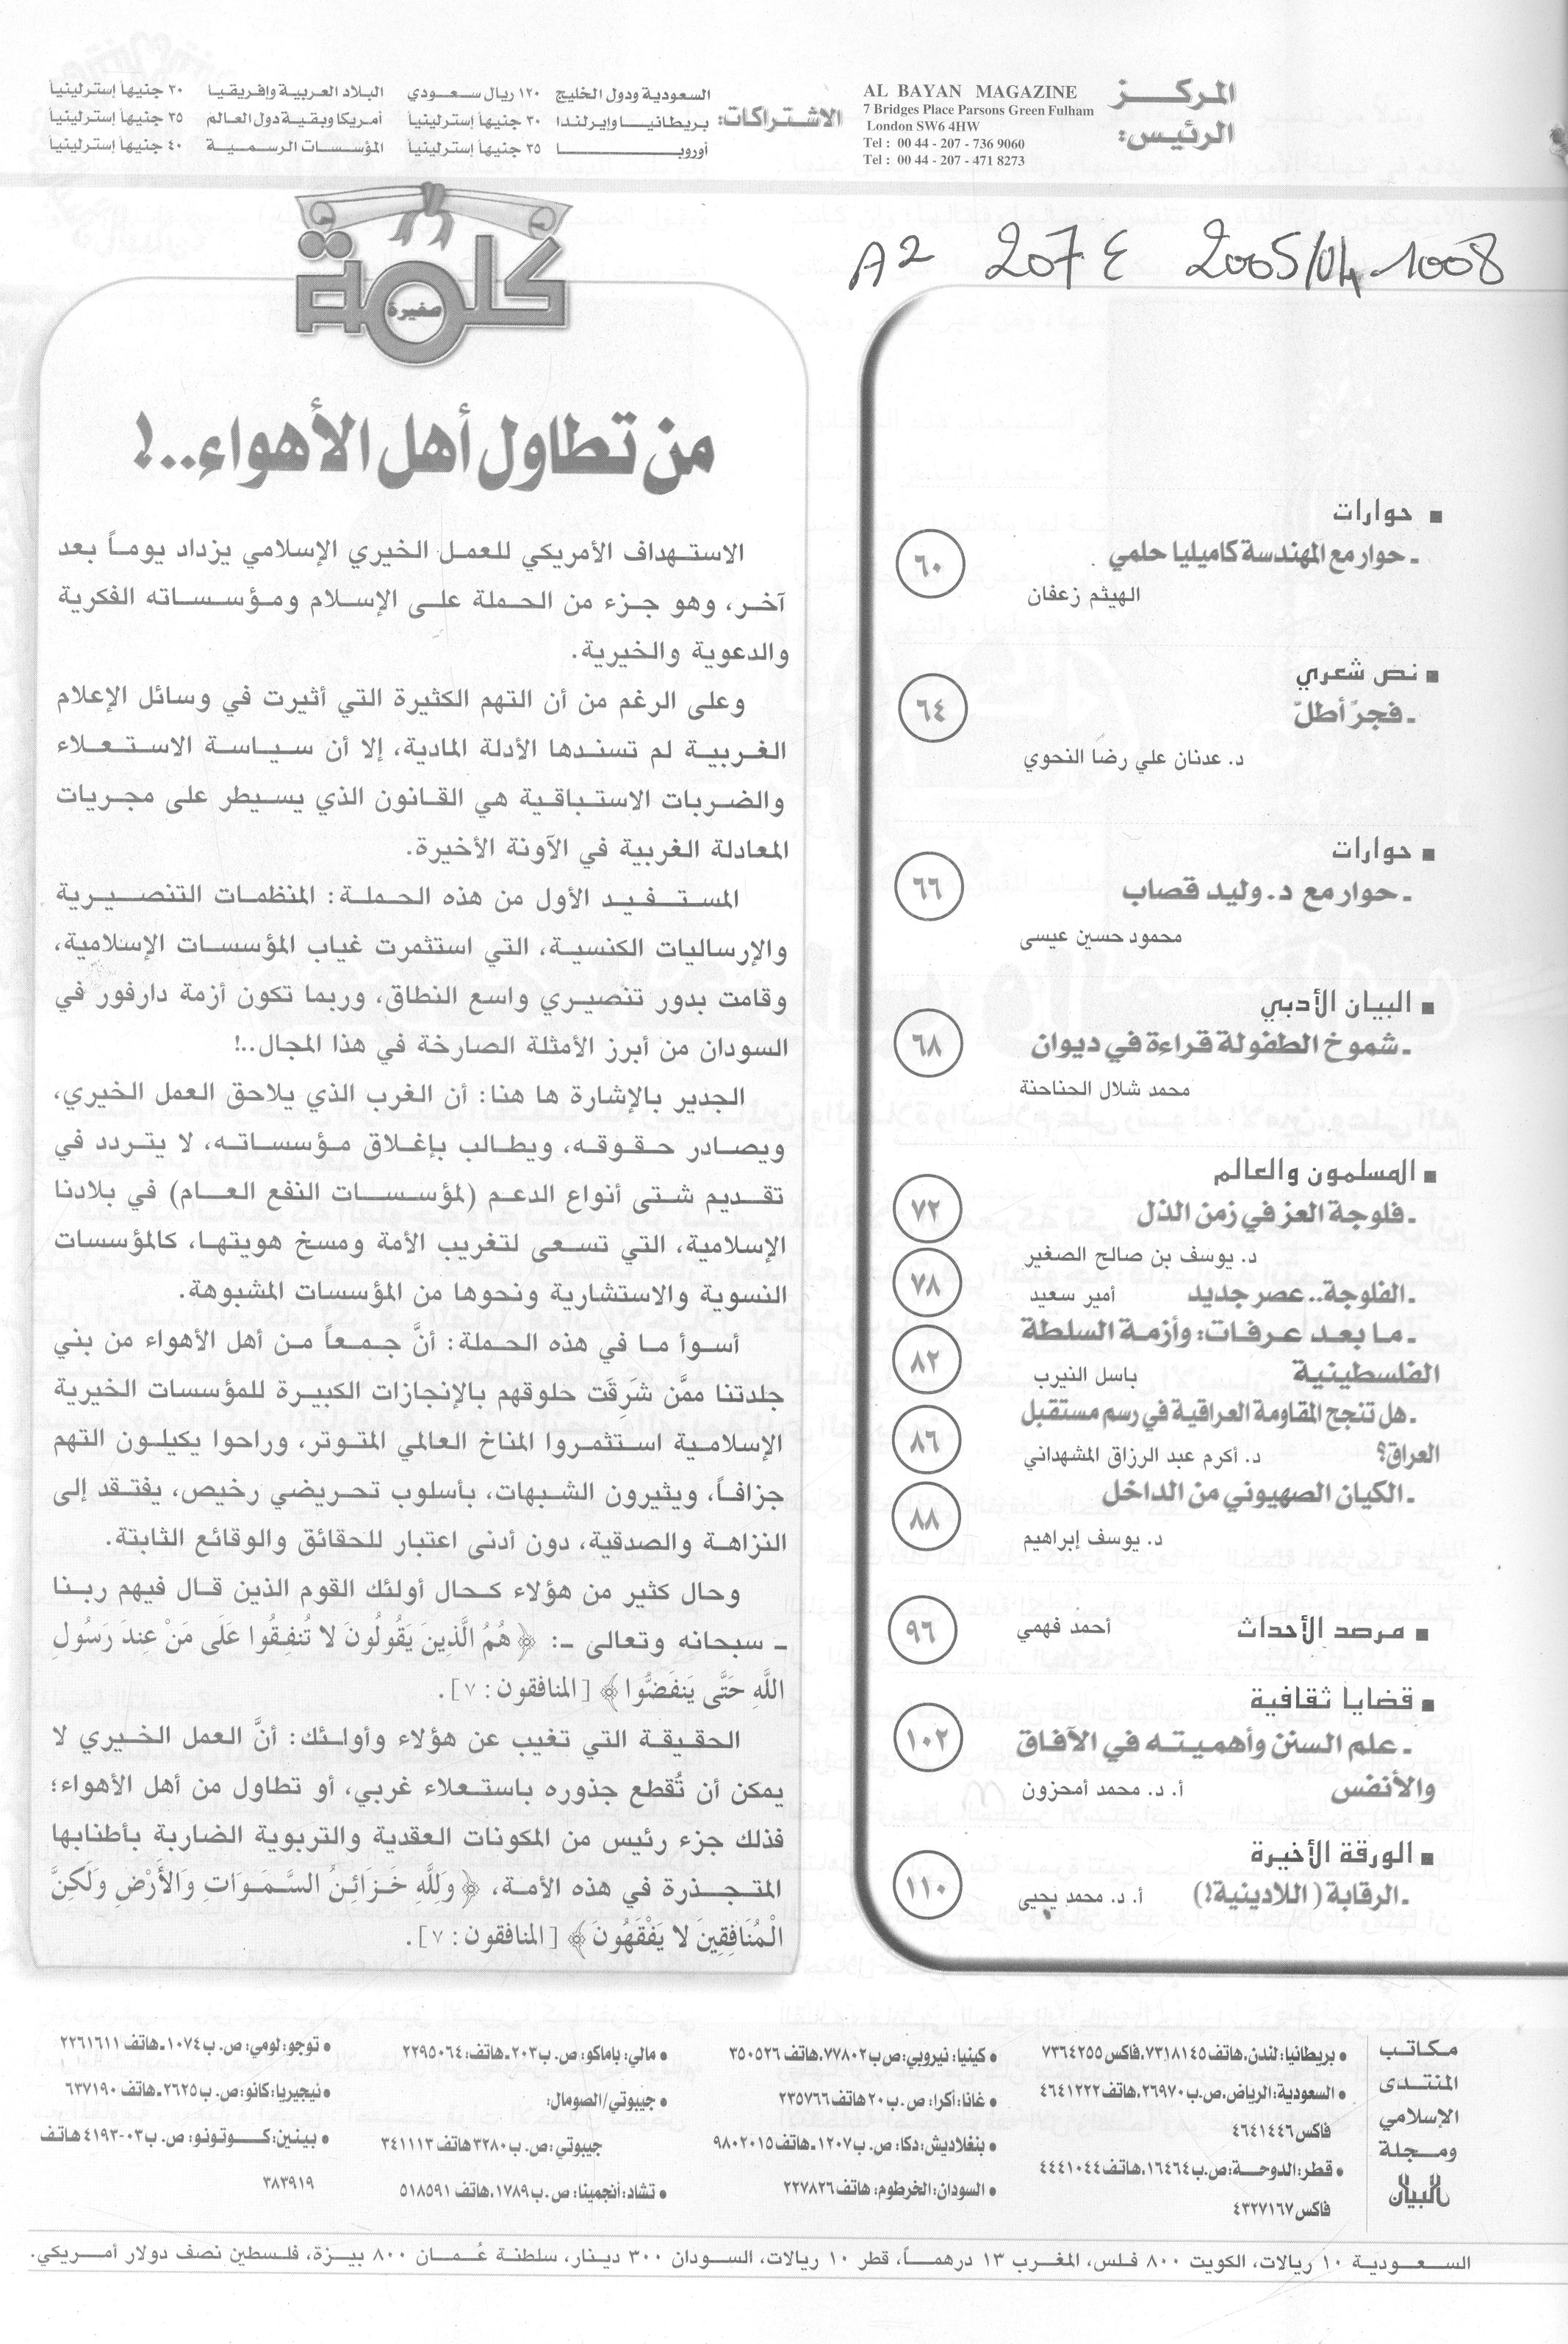 المركز
الرئيس:
AL BAYAN MAGAZINE
7 Bridges Place Parsons Green Fulham
London SW6 4HW
Tel : 00 44 - 207 - 736 9060
Tel : 00 44 - 207 - 471 8273
الاشتراكات:
السعودية ودول الخليج ١٢٠ ريال سعودي
بريطانيا وإيرلندا ٣٠ جنيهاً إسترلينياً
أوروبا ٣٥ جنيهاً إسترلينياً
البلاد العربية وإفريقيا ٣٠ جنيهاً إسترلينياً
أمريكا وبقية دول العالم ٣٥ جنيهاً إسترلينياً
المؤسسات الرسمية ٤٠ جنيهاً إسترلينياً
A2 207 E 2005/04-1008
■ حوارات
ـ حوار مع المهندسة كاميليا حلمي ٦٠
الهيثم زعفان
■ نص شعري
ـ فجرٌ أطلّ ٦٤
د. عدنان علي رضا النحوي
■ حوارات
ـ حوار مع د. وليد قصاب ٦٦
محمود حسين عيسى
■ البيان الأدبي
ـ شموخ الطفولة قراءة في ديوان ٦٨
محمد شلال الحناحنة
■ المسلمون والعالم
ـ فلوجة العز في زمن الذل ٧٢
د. يوسف بن صالح الصغير
ـ الفلوجة.. عصر جديد أمير سعيد ٧٨
ـ ما بعد عرفات: وأزمة السلطة
الفلسطينية باسل النيرب ٨٢
ـ هل تنجح المقاومة العراقية في رسم مستقبل
العراق؟ د. أكرم عبد الرزاق المشهداني ٨٦
ـ الكيان الصهيوني من الداخل ٨٨
د. يوسف إبراهيم
■ مرصد الأحداث أحمد فهمي ٩٦
■ قضايا ثقافية
ـ علم السنن وأهميته في الآفاق ١٠٢
والأنفس أ. د. محمد أمحزون
■ الورقة الأخيرة
ـ الرقابة (اللادينية!) أ. د. محمد يحيى ١١٠
كلمة
صغيرة
من تطاول أهل الأهواء..!
الاستهداف الأمريكي للعمل الخيري الإسلامي يزداد يوماً بعد
آخر، وهو جزء من الحملة على الإسلام ومؤسساته الفكرية
والدعوية والخيرية.
وعلى الرغم من أن التهم الكثيرة التي أثيرت في وسائل الإعلام
الغربية لم تسندها الأدلة المادية، إلا أن سياسة الاستعلاء
والضربات الاستباقية هي القانون الذي يسيطر على مجريات
المعادلة الغربية في الآونة الأخيرة.
المستفيد الأول من هذه الحملة: المنظمات التنصيرية
والإرساليات الكنسية، التي استثمرت غياب المؤسسات الإسلامية،
وقامت بدور تنصيري واسع النطاق، وربما تكون أزمة دارفور في
السودان من أبرز الأمثلة الصارخة في هذا المجال..!
الجدير بالإشارة ها هنا: أن الغرب الذي يلاحق العمل الخيري،
ويصادر حقوقه، ويطالب بإغلاق مؤسساته، لا يتردد في
تقديم شتى أنواع الدعم (لمؤسسات النفع العام) في بلادنا
الإسلامية، التي تسعى لتغريب الأمة ومسخ هويتها، كالمؤسسات
النسوية والاستشارية ونحوها من المؤسسات المشبوهة.
أسوأ ما في هذه الحملة: أنَّ جمعاً من أهل الأهواء من بني
جلدتنا ممَّن شَرِقَت حلوقهم بالإنجازات الكبيرة للمؤسسات الخيرية
الإسلامية استثمروا المناخ العالمي المتوتر، وراحوا يكيلون التهم
جزافاً، ويثيرون الشبهات، بأسلوب تحريضي رخيص، يفتقد إلى
النزاهة والصدقية، دون أدنى اعتبار للحقائق والوقائع الثابتة.
وحال كثير من هؤلاء كحال أولئك القوم الذين قال فيهم ربنا
ـ سبحانه وتعالى ـ: ﴿هُمُ الَّذِينَ يَقُولُونَ لا تُنفِقُوا عَلَى مَنْ عِندَ رَسُولِ
اللَّهِ حَتَّى يَنفَضُّوا﴾ [المنافقون: ٧].
الحقيقة التي تغيب عن هؤلاء وأولئك: أنَّ العمل الخيري لا
يمكن أن تُقطع جذوره باستعلاء غربي، أو تطاول من أهل الأهواء؛
فذلك جزء رئيس من المكونات العقدية والتربوية الضاربة بأطنابها
المتجذرة في هذه الأمة، ﴿وَلِلَّهِ خَزَائِنُ السَّمَوَاتِ وَالأَرْضِ وَلَكِنَّ
الْمُنَافِقِينَ لا يَفْقَهُونَ﴾ [المنافقون: ٧].
مكاتب
المنتدى
الإسلامي
ومجلة
البيان
● بريطانيا: لندن، هاتف ٧٣١٨١٤٥، فاكس ٧٣٦٤٢٥٥
● السعودية: الرياض، ص.ب ٢٦٩٧٠، هاتف ٤٦٤١٢٢٢
فاكس ٤٦٤١٤٤٦
● قطر: الدوحة: ص.ب ١٦٤٦٤، هاتف ٤٤٤١٠٤٤
فاكس ٤٣٢٧١٦٧
● كينيا: نيروبي: ص ب ٧٧٨٠٢، هاتف ٣٥٠٥٢٦
● غانا: أكرا: ص. ب ٢٠ هاتف ٢٣٥٧٦٦
● بنغلاديش: دكا: ص. ب ١٢٠٧ ـ هاتف ٩٨٠٢٠١٥
● السودان: الخرطوم: هاتف ٢٢٧٨٢٦
● مالي: باماكو: ص. ب ٢٠٣ ـ هاتف: ٢٢٩٥٠٦٤
● جيبوتي/الصومال:
جيبوتي: ص. ب ٣٢٨٠ هاتف ٣٤١١١٣
● تشاد: أنجمينا: ص. ب ١٧٨٩، هاتف ٥١٨٥٩١
● توجو: لومي: ص. ب ١٠٧٤ ـ هاتف ٢٢٦١٦١١
● نيجيريا: كانو: ص. ب ٢٦٢٥ ـ هاتف ٦٣٧١٩٠
● بينين: كوتونو: ص. ب ٠٣-٤١٩٣ هاتف
٣٨٣٩١٩
السعودية ١٠ ريالات، الكويت ٨٠٠ فلس، المغرب ١٣ درهماً، قطر ١٠ ريالات، السودان ٣٠٠ دينار، سلطنة عُمان ٨٠٠ بيزة، فلسطين نصف دولار أمريكي.